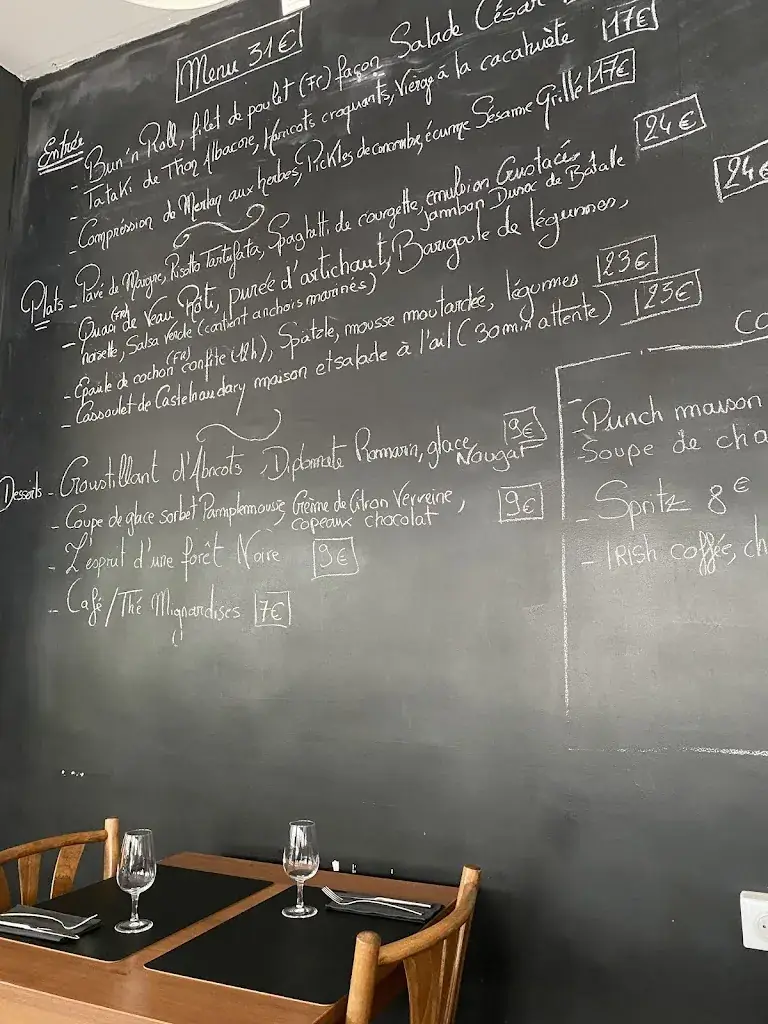 Menu 31€
Entrée
- Bun'n Roll, filet de poulet (FR) façon Salade César
- Tataki de Thon Albacore, Haricots croquants, Vierge à la cacahuète 17€
- Compression de Merlan aux herbes, Pickles de concombre, écume Sésame Grillé 17€
Plats - Pavé de Maigre, Risotto Tartufata, Spaghetti de courgette, emulsion Crustacés 24€
jambon Dunac de Batalle
- Quasi de Veau Rôti, purée d'artichaut, Barigoule de légumes, 24€
noisette, Salsa Verde (contient anchois marinés)
- Epaule de cochon (FR) confite (12h), Spätzle, mousse moutardée, légumes 23€
- Cassoulet de Castelnaudary maison et salade à l'ail (30min attente) 23€
Desserts - Croustillant d'Abricots, Diplomate Romarin, glace 9€
Nougat
- Coupe de glace sorbet Pamplemousse, Crème de Citron Verveine, 9€
copeaux chocolat
- L'esprit d'une forêt Noire 9€
- Café/Thé Mignardises 7€
CO
- Punch maison
- Soupe de cha
- Spritz 8€
- IRISH coffée, ch